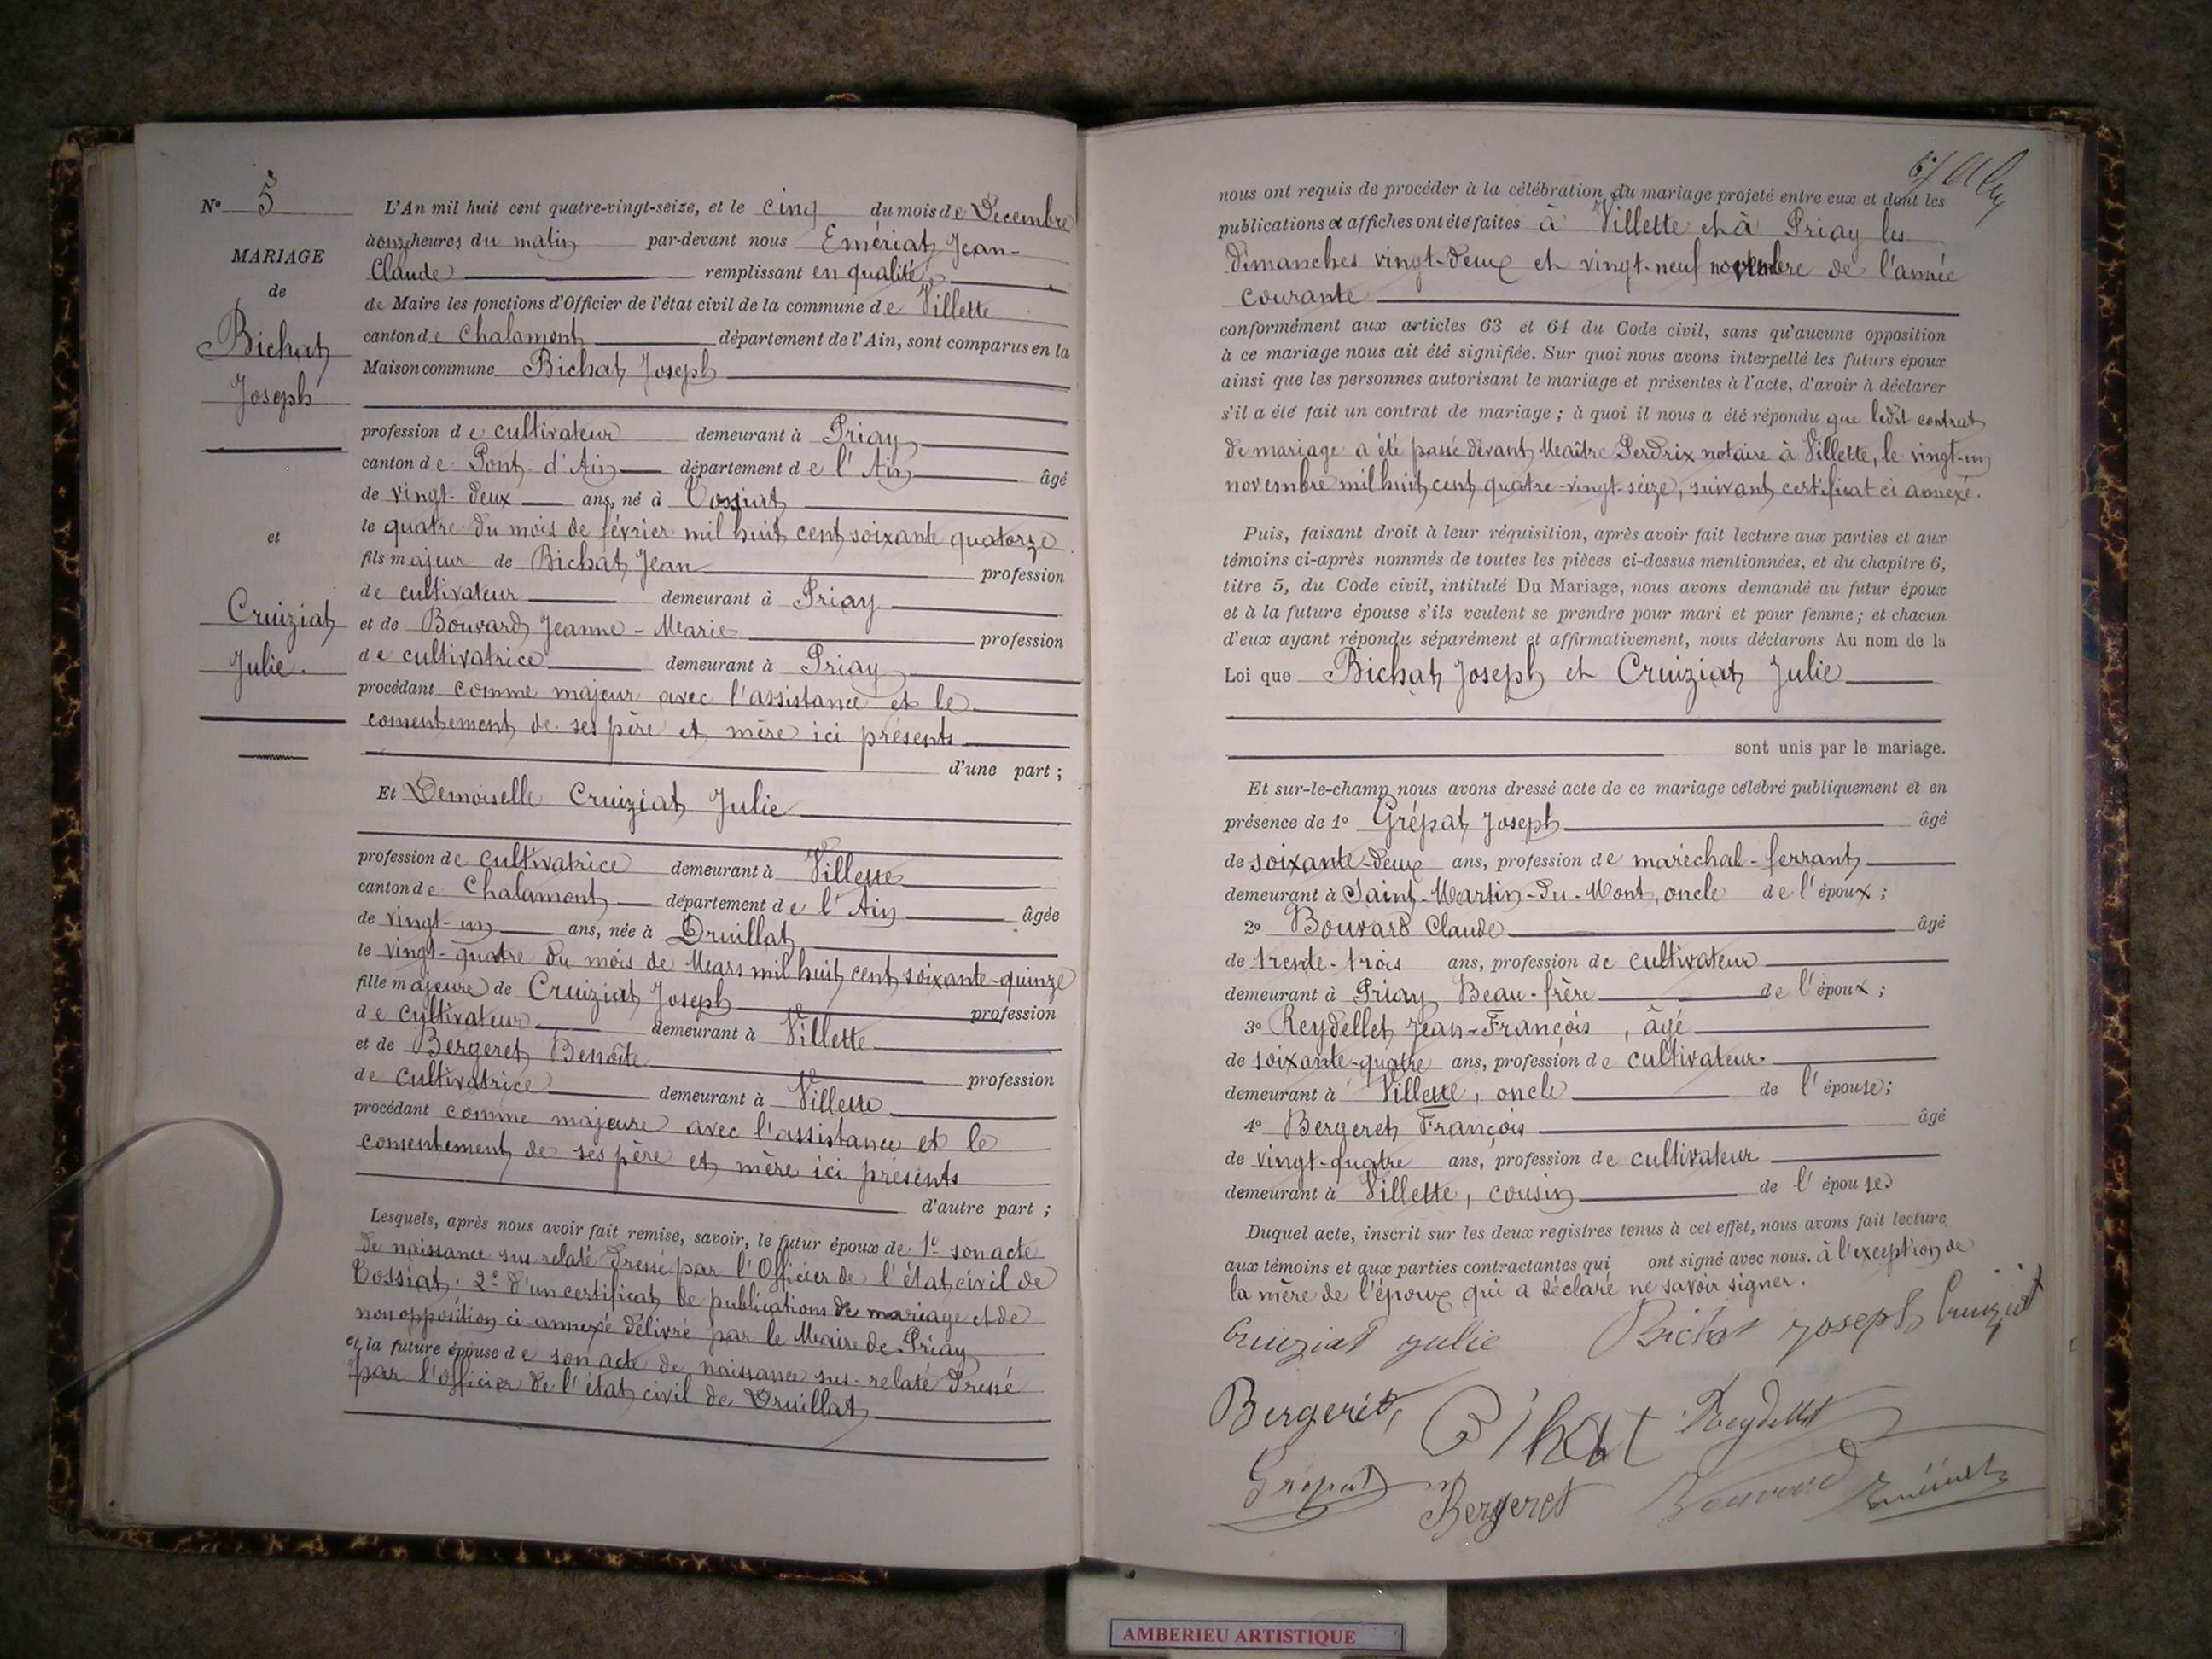 Nº 5
MARIAGE
de
Bichat
Joseph
et
Cruiziat
Julie.
L'An mil huit cent quatre-vingt-seize, et le cinq du mois de Decembre
à onze heures du matin par-devant nous Emériat Jean-
Claude remplissant en qualité
de Maire les fonctions d'Officier de l'état civil de la commune de Villette
canton de Chalamont département de l'Ain, sont comparus en la
Maison commune Bichat Joseph
profession de cultivateur demeurant à Priay
canton de Pont-d'Ain département de l'Ain âgé
de vingt-deux ans, né à Tossiat
le quatre du mois de février mil huit cent soixante quatorze
fils majeur de Bichat Jean profession
de cultivateur demeurant à Priay
et de Bouvard Jeanne-Marie profession
de cultivatrice demeurant à Priay
procédant comme majeur avec l'assistance et le
consentement de ses père et mère ici présents
d'une part ;
Et Demoiselle Cruiziat Julie
profession de cultivatrice demeurant à Villette
canton de Chalamont département de l'Ain âgée
de vingt-un ans, née à Druillat
le vingt-quatre du mois de Mars mil huit cent soixante-quinze
fille majeure de Cruiziat Joseph profession
de cultivateur demeurant à Villette
et de Bergeret Benoîte profession
de cultivatrice demeurant à Villette
procédant comme majeure avec l'assistance et le
consentement de ses père et mère ici présents
d'autre part ;
Lesquels, après nous avoir fait remise, savoir, le futur époux de: 1º son acte
de naissance sus-relaté dressé par l'Officier de l'état civil de
Tossiat; 2º d'un certificat de publications de mariage et de
non opposition ci-annexé délivré par le Maire de Priay
et la future épouse de son acte de naissance sus-relaté dressé
par l'officier de l'état civil de Druillat
nous ont requis de procéder à la célébration du mariage projeté entre eux et dont les
publications et affiches ont été faites à Villette et à Priay les
dimanches vingt-deux et vingt-neuf novembre de l'année
courante
conformément aux articles 63 et 64 du Code civil, sans qu'aucune opposition
à ce mariage nous ait été signifiée. Sur quoi nous avons interpellé les futurs époux
ainsi que les personnes autorisant le mariage et présentes à l'acte, d'avoir à déclarer
s'il a été fait un contrat de mariage ; à quoi il nous a été répondu que ledit contrat
de mariage a été passé devant Maître Perdrix notaire à Villette, le vingt-un
novembre mil huit cent quatre-vingt-seize, suivant certificat ci annexé.
Puis, faisant droit à leur réquisition, après avoir fait lecture aux parties et aux
témoins ci-après nommés de toutes les pièces ci-dessus mentionnées, et du chapitre 6,
titre 5, du Code civil, intitulé Du Mariage, nous avons demandé au futur époux
et à la future épouse s'ils veulent se prendre pour mari et pour femme ; et chacun
d'eux ayant répondu séparément et affirmativement, nous déclarons Au nom de la
Loi que Bichat Joseph et Cruiziat Julie
sont unis par le mariage.
Et sur-le-champ nous avons dressé acte de ce mariage célébré publiquement et en
présence de 1º Grépat Joseph âgé
de soixante-deux ans, profession de maréchal-ferrant
demeurant à Saint-Martin-du-Mont, oncle de l'époux ;
2º Bouvard Claude âgé
de trente-trois ans, profession de cultivateur
demeurant à Priay Beau-frère de l'époux ;
3º Reydellet Jean-François, âgé
de soixante-quatre ans, profession de cultivateur
demeurant à Villette, oncle de l'épouse;
4º Bergeret François âgé
de vingt-quatre ans, profession de cultivateur
demeurant à Villette, cousin de l'épouse
Duquel acte, inscrit sur les deux registres tenus à cet effet, nous avons fait lecture
aux témoins et aux parties contractantes qui ont signé avec nous. à l'exception de
la mère de l'époux qui a déclaré ne savoir signer.
Cruiziat julie Bichat joseph Cruiziat
Bergeret Bichat Reydellet
Grépat Bergeret Bouvard Emériat
AMBERIEU ARTISTIQUE